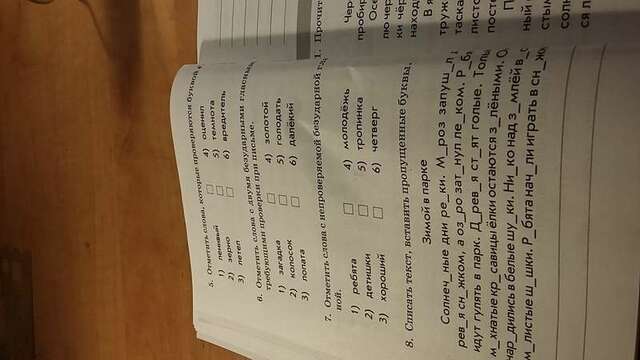 5. Отметить слова, которые проверяются буквой
1) ленивый
2) зерно
3) летел
4) оценил
5) темнота
6) вредитель
6. Отметить слова с двумя безударными гласными,
требующими проверки при письме.
1) загадка
2) колосок
3) лопата
4) золотой
5) голодать
6) далёкий
7. Отметить слова с непроверяемой безударной
ной.
1) ребята
2) детишки
3) хороший
4) молодёжь
5) тропинка
6) четверг
8. Списать текст, вставить пропущенные буквы,
Зимой в парке
Солнеч_ные дни ре_ки. М_роз запуш_л
рев_я сн_жком, а оз_ро зат_нул ле_ком. Р_б
идут гулять в парк. Д_рев_я ст_ят голые. Толь
м_хнатые кр_савицы ёлки остаются з_лёными. О
нар_дились в белые шу_ки. Ни_ко над з_млёй в_
м_листые ш_шки. Р_бята нач_ли играть в сн_жо
1. Прочит
Чер
пробир
Осе
лю чер
ки чёр
наход
В я
труж
таска
листо
посте
П
ный
стым
солн
ся л